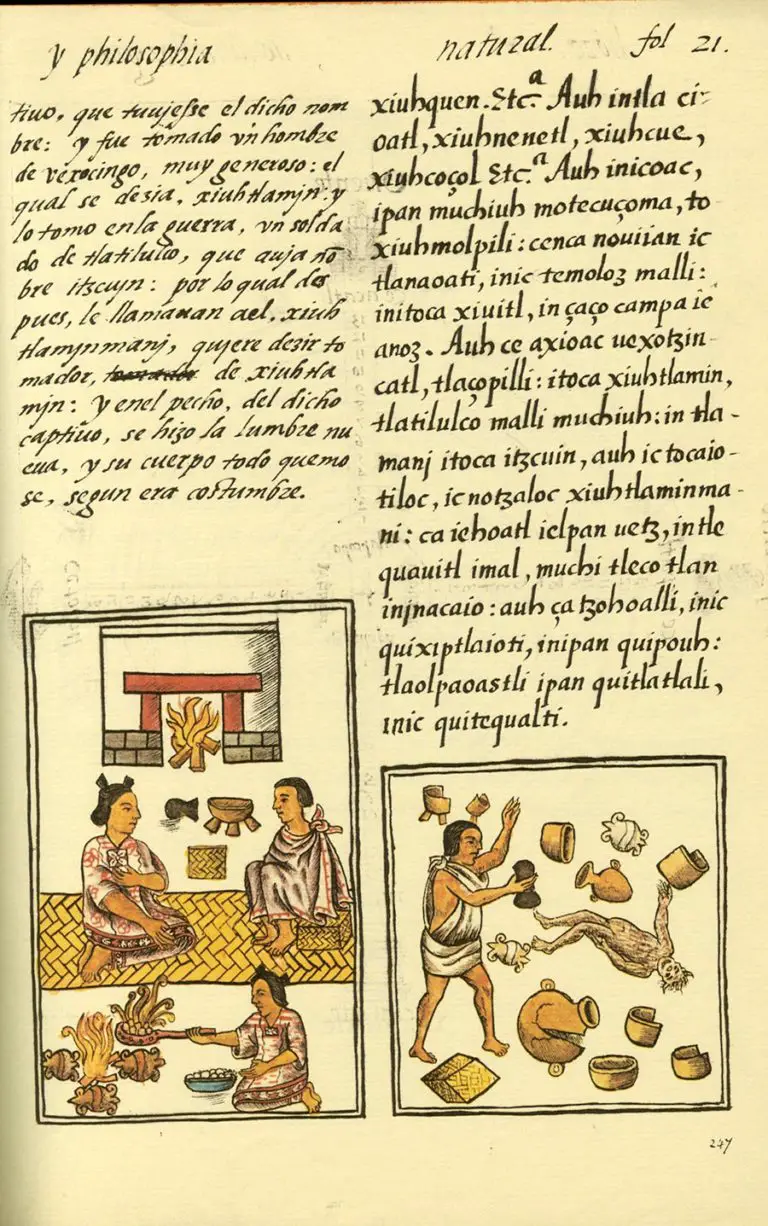 y philosophia
natural.
fol 21.
tiuo, que tuujesse el dicho nom
bre: y fue tomado vn hombre
de vexocingo, muy generoso: el
qual se desia, xiuhtlamjn: y
lo tomo en la guerra, vn solda
do de tlatilulco, que auja nō
bre itzcuyn: por lo qual des
pues, le llamauan ael, xiuh
tlamjnmanj, qujere dezir to
mador, de xiuhtla
mjn: y enel pecho, del dicho
captiuo, se hizo la lumbre nu
eua, y su cuerpo todo quemo
se, segun era costumbre.
xiuhquen. Etc.ª Auh intla ci-
oatl, xiuhnenetl, xiuhcue,
xiuhcoçol Etc.ª Auh inicoac,
ipan muchiuh motecuçoma, to
xiuhmolpili: cenca nouiian ic
tlanaoati, inic temoloz malli:
initoca xiuitl, in çaço campa ie
anoz. Auh ce axioac uexotzin
catl, tlaçopilli: itoca xiuhtlamin,
tlatilulco malli muchiuh: in tla-
manj itoca itzcuin, auh ic tocaio-
tiloc, ic notzaloc xiuhtlaminma-
ni: ca iehoatl ielpan uetz, in tle
quauitl imal, muchi tleco tlan
injnacaio: auh ça tzohoalli, inic
quixiptlaioti, inipan quipouh:
tlaolpaoastli ipan quitlatlali,
inic quitequalti.
247